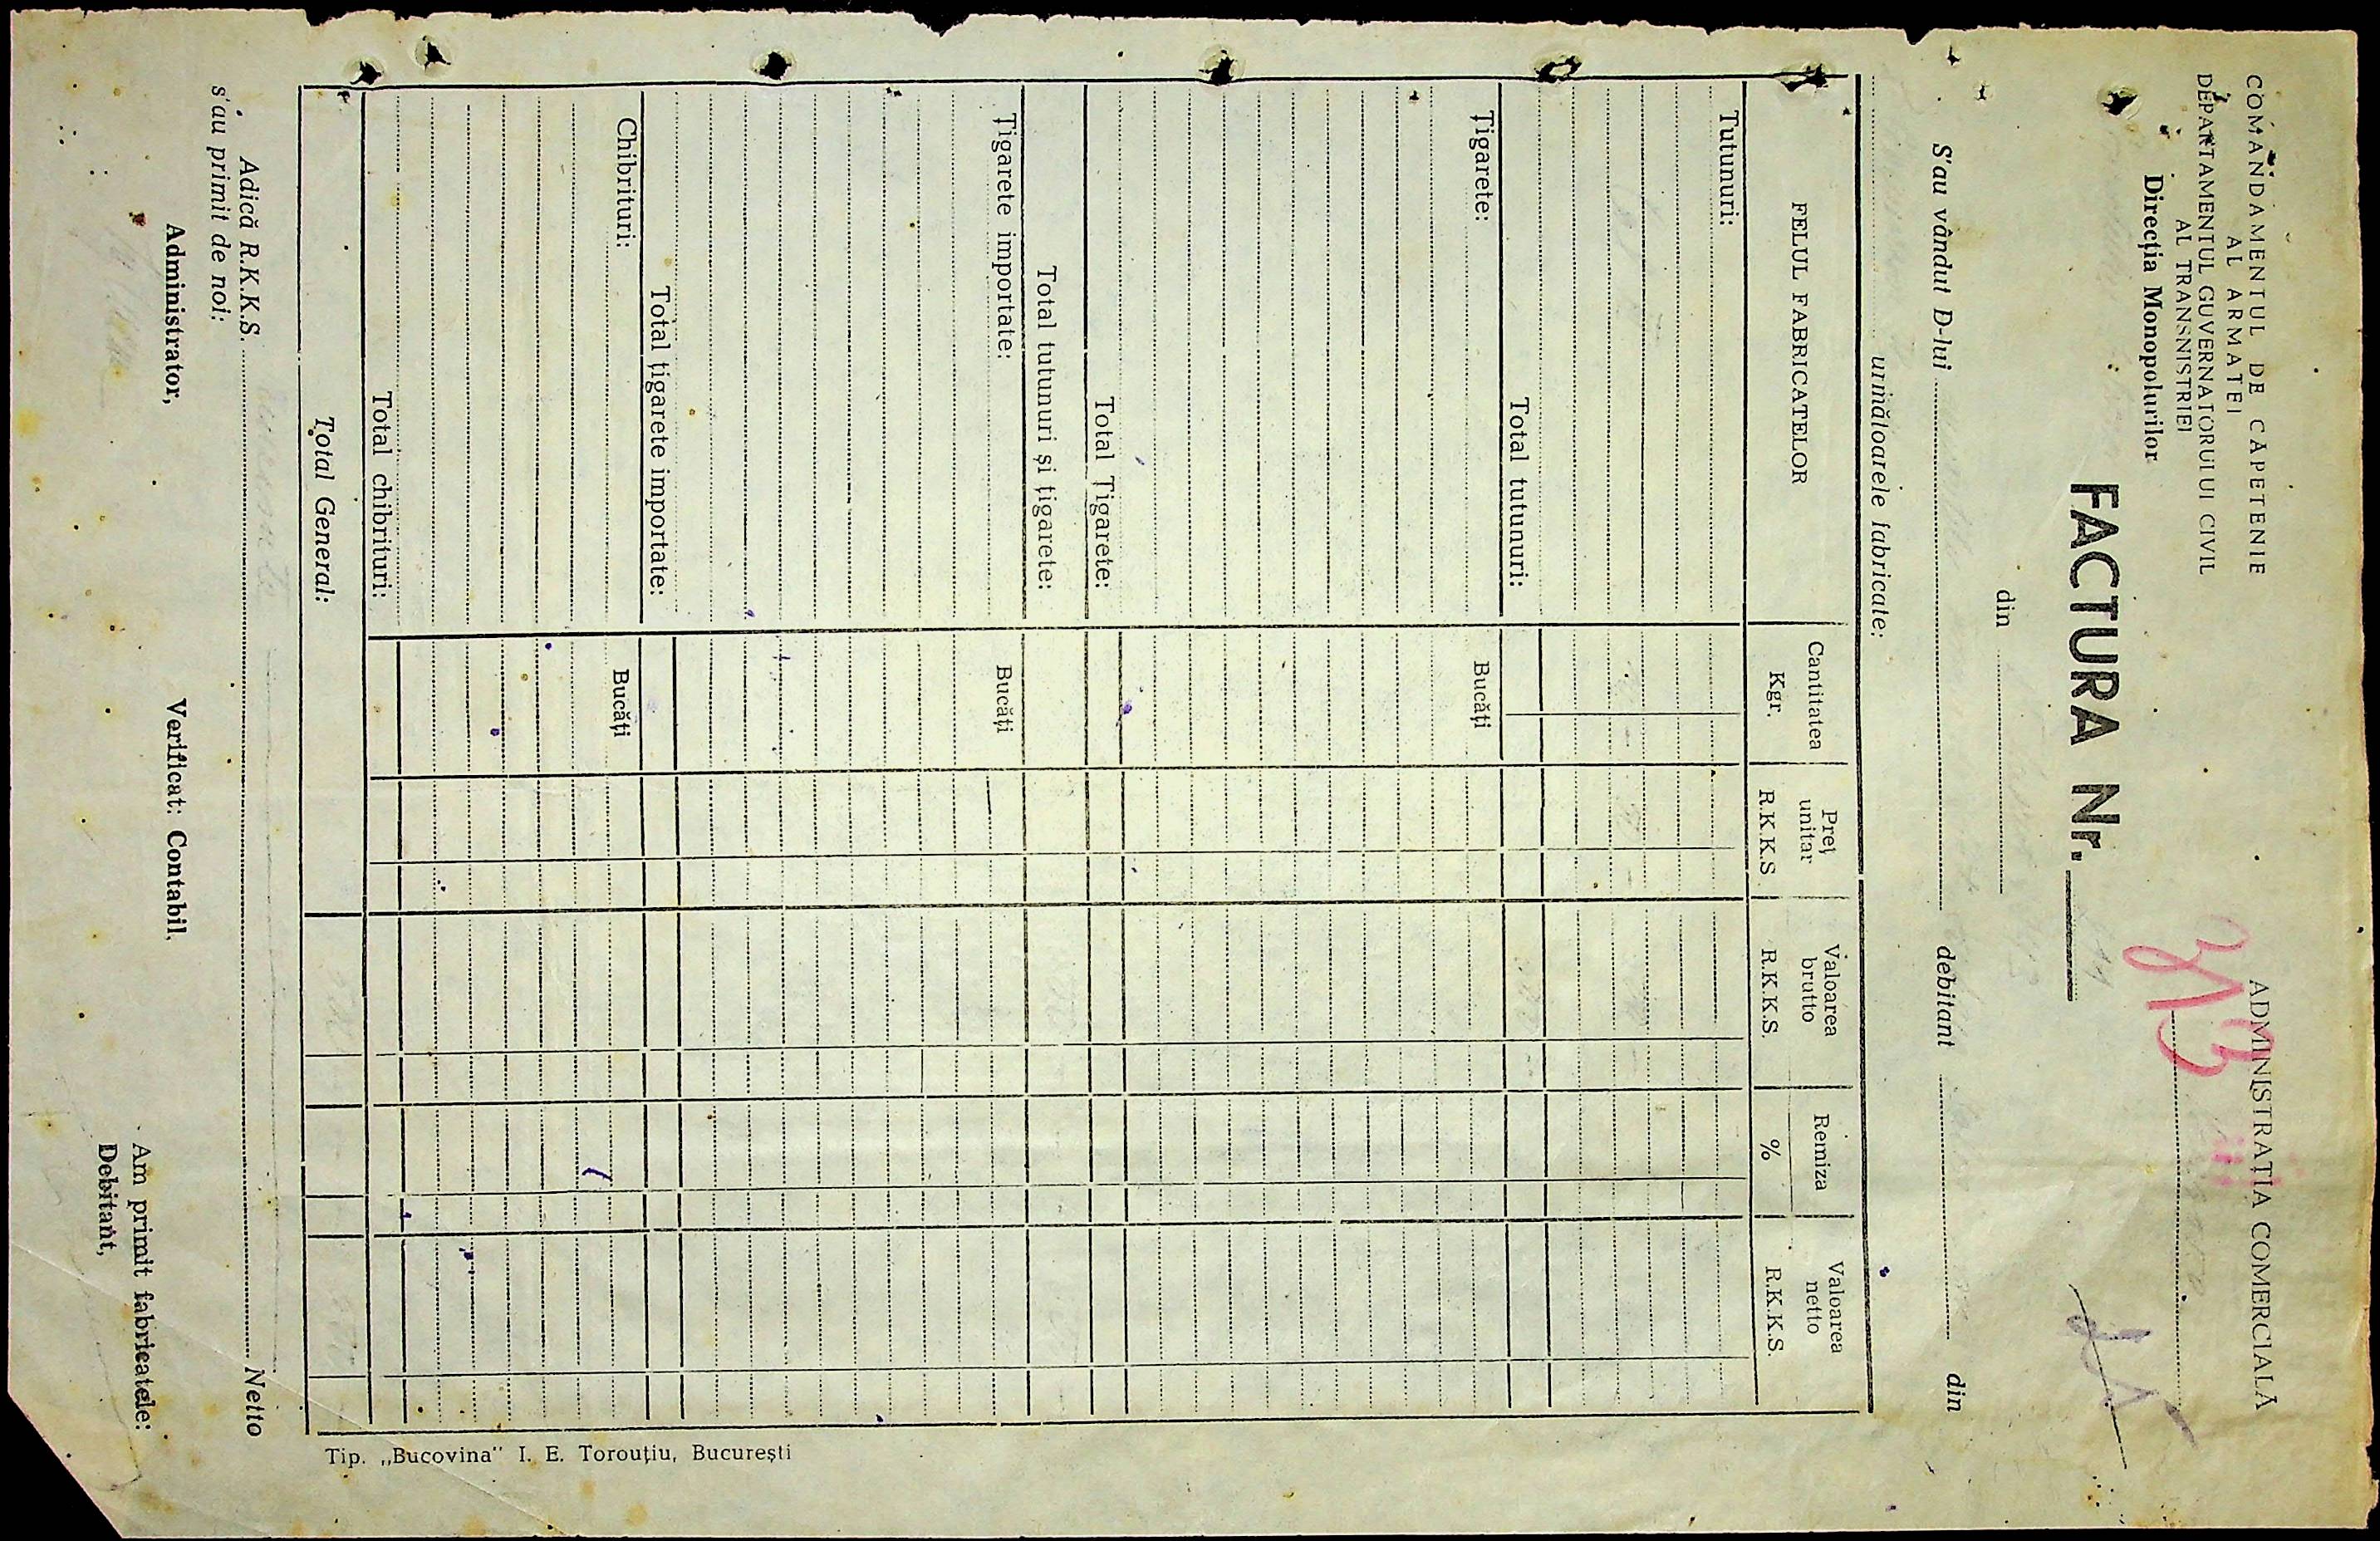 COMANDAMENTUL DE CĂPETENIE
AL ARMATEI
DEPARTAMENTUL GUVERNATORULUI CIVIL
AL TRANSNISTRIEI
Direcția Monopolurilor
ADMINISTRAȚIA COMERCIALĂ
313
FACTURA Nr.
din
S'au vândut D-lui debitant din
următoarele fabricate:
FELUL FABRICATELOR Cantitatea Kgr. Preț unitar R.K.K.S Valoarea brutto R.K.K.S. Remiza % Valoarea netto R.K.K.S.
Tutunuri:
Total tutunuri:
Țigarete: Bucăți
Total Țigarete:
Total tutunuri și țigarete:
Țigarete importate: Bucăți
Total țigarete importate:
Chibrituri: Bucăți
Total chibrituri:
Total General:
Adică R.K.K.S. Netto
s'au primit de noi:
Administrator, Verificat: Contabil, Am primit fabricatele:
Debitant,
Tip. „Bucovina" I. E. Torouțiu, București